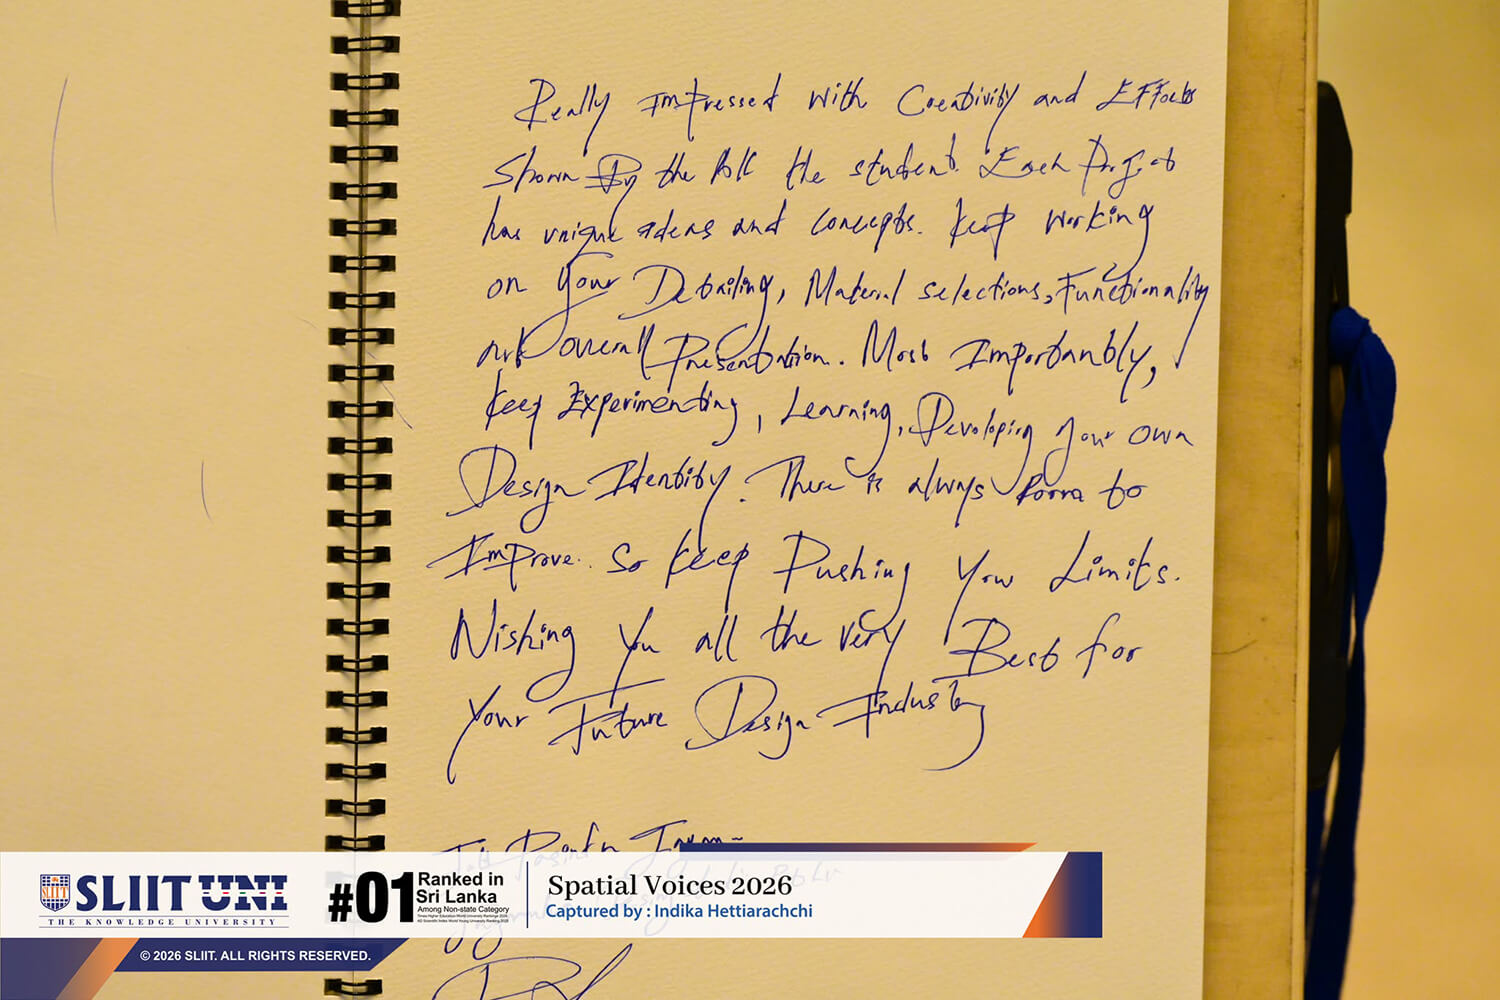 Really Impressed with Creativity and Efforts
Shown By the All the student. Each Project
has unique ideas and concepts. Keep working
on your Detailing, Material selections, Functionality
and overall Presentation. Most Importantly,
Keep Experimenting, Learning, Developing your own
Design Identity. There is always Room to
Improve. So Keep Pushing your Limits.
Wishing you all the very Best for
your Future Design Industry
SLIIT UNI
THE KNOWLEDGE UNIVERSITY
#01 Ranked in
Sri Lanka
Among Non-state Category
Spatial Voices 2026
Captured by : Indika Hettiarachchi
© 2026 SLIIT. ALL RIGHTS RESERVED.